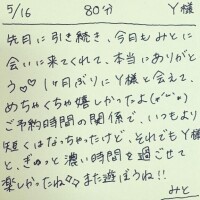 5/16 80分 Y様
先月に引き続き、今月もみとに
会いに来てくれて、本当にありがと
う♡♡ 1ヶ月ぶりにY様と会えて、
めちゃくちゃ嬉しかったよ(*ˊᵕˋ*)
ご予約時間の関係で、いつもより
短くはなっちゃったけど、それでもY様
と、ぎゅっと濃い時間を過ごせて
楽しかったね♪♪また遊ぼうね!!
みと